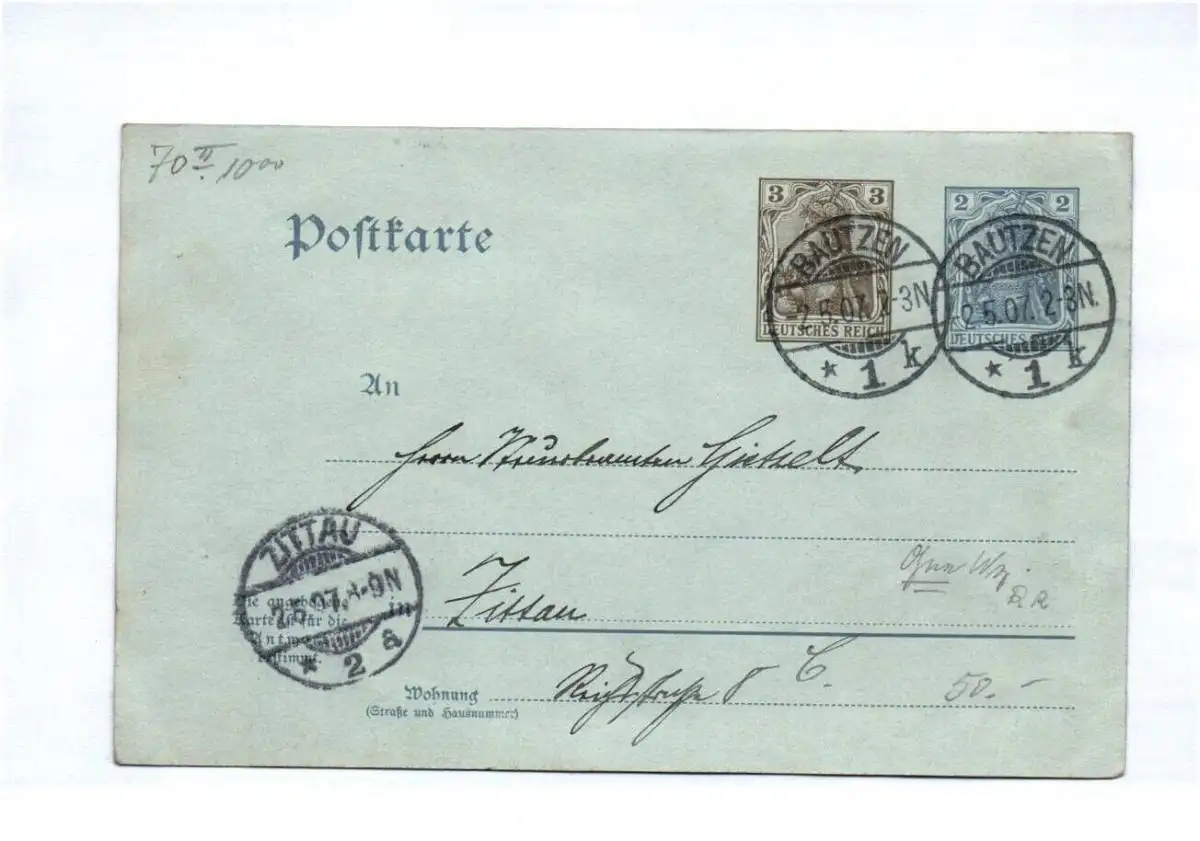 70 II 1000
3 3
DEUTSCHES REICH
2 2
DEUTSCHES REICH
BAUTZEN
2.5.07. 2-3N.
* 1 k
BAUTZEN
2.5.07. 2-3N.
* 1 k
Postkarte
An
Herrn
in Zittau
Ohne Wz.
ZITTAU
2.5.07. 8-9N
* 2 a
Die angebogene
Karte ist für die
Antwort
bestimmt.
Wohnung
(Straße und Hausnummer)
Reichsstraße 8 C.
50.-